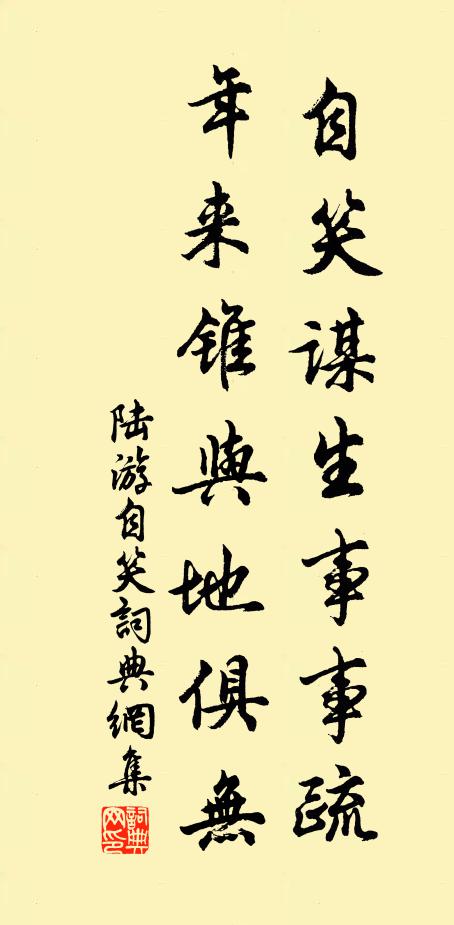 自笑謀生事事疏
年来錐與地俱無
陆游自笑詞典網集
詞典
网印